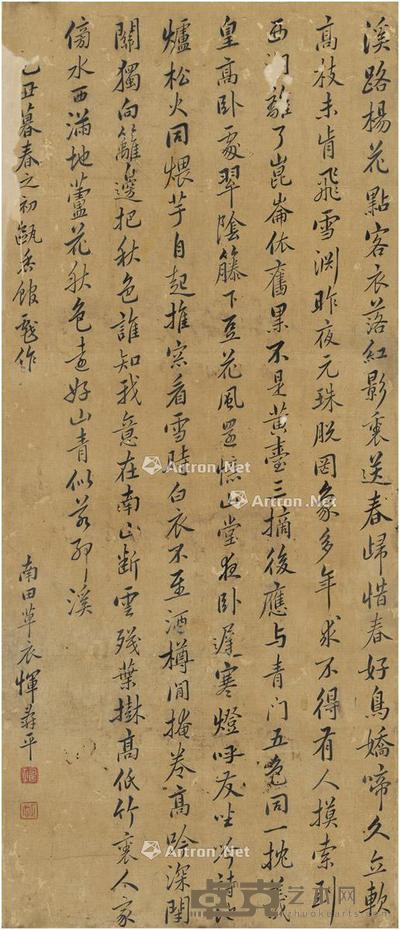 溪路楊花點客衣落紅影裏送春歸惜春好鳥嬌啼久立軟
高枝未肯飛雪渊昨夜元珠脫罔象多年求不得有人摸索到
西離了崑崙依舊黑不是黃臺三摘後應與青门五色同一枕義
皇高卧處翠陰籐下豆花風還憶山堂夜卧遲寒燈呼友坐詩
爐松火同煨芋自起推窓看雪時白衣不至酒樽間掩卷高吟深閉
關獨向籬邊把秋色誰知我意在南山斷雲殘葉樹高低竹裏人家
傍水西滿地蘆花秋色遠好山青似若耶溪
己丑暮春之初甌香館戲作
南田草衣惲壽平
Artron.Net
Artron.Net
Artron.Net
Artron.Net
卓克艺术网